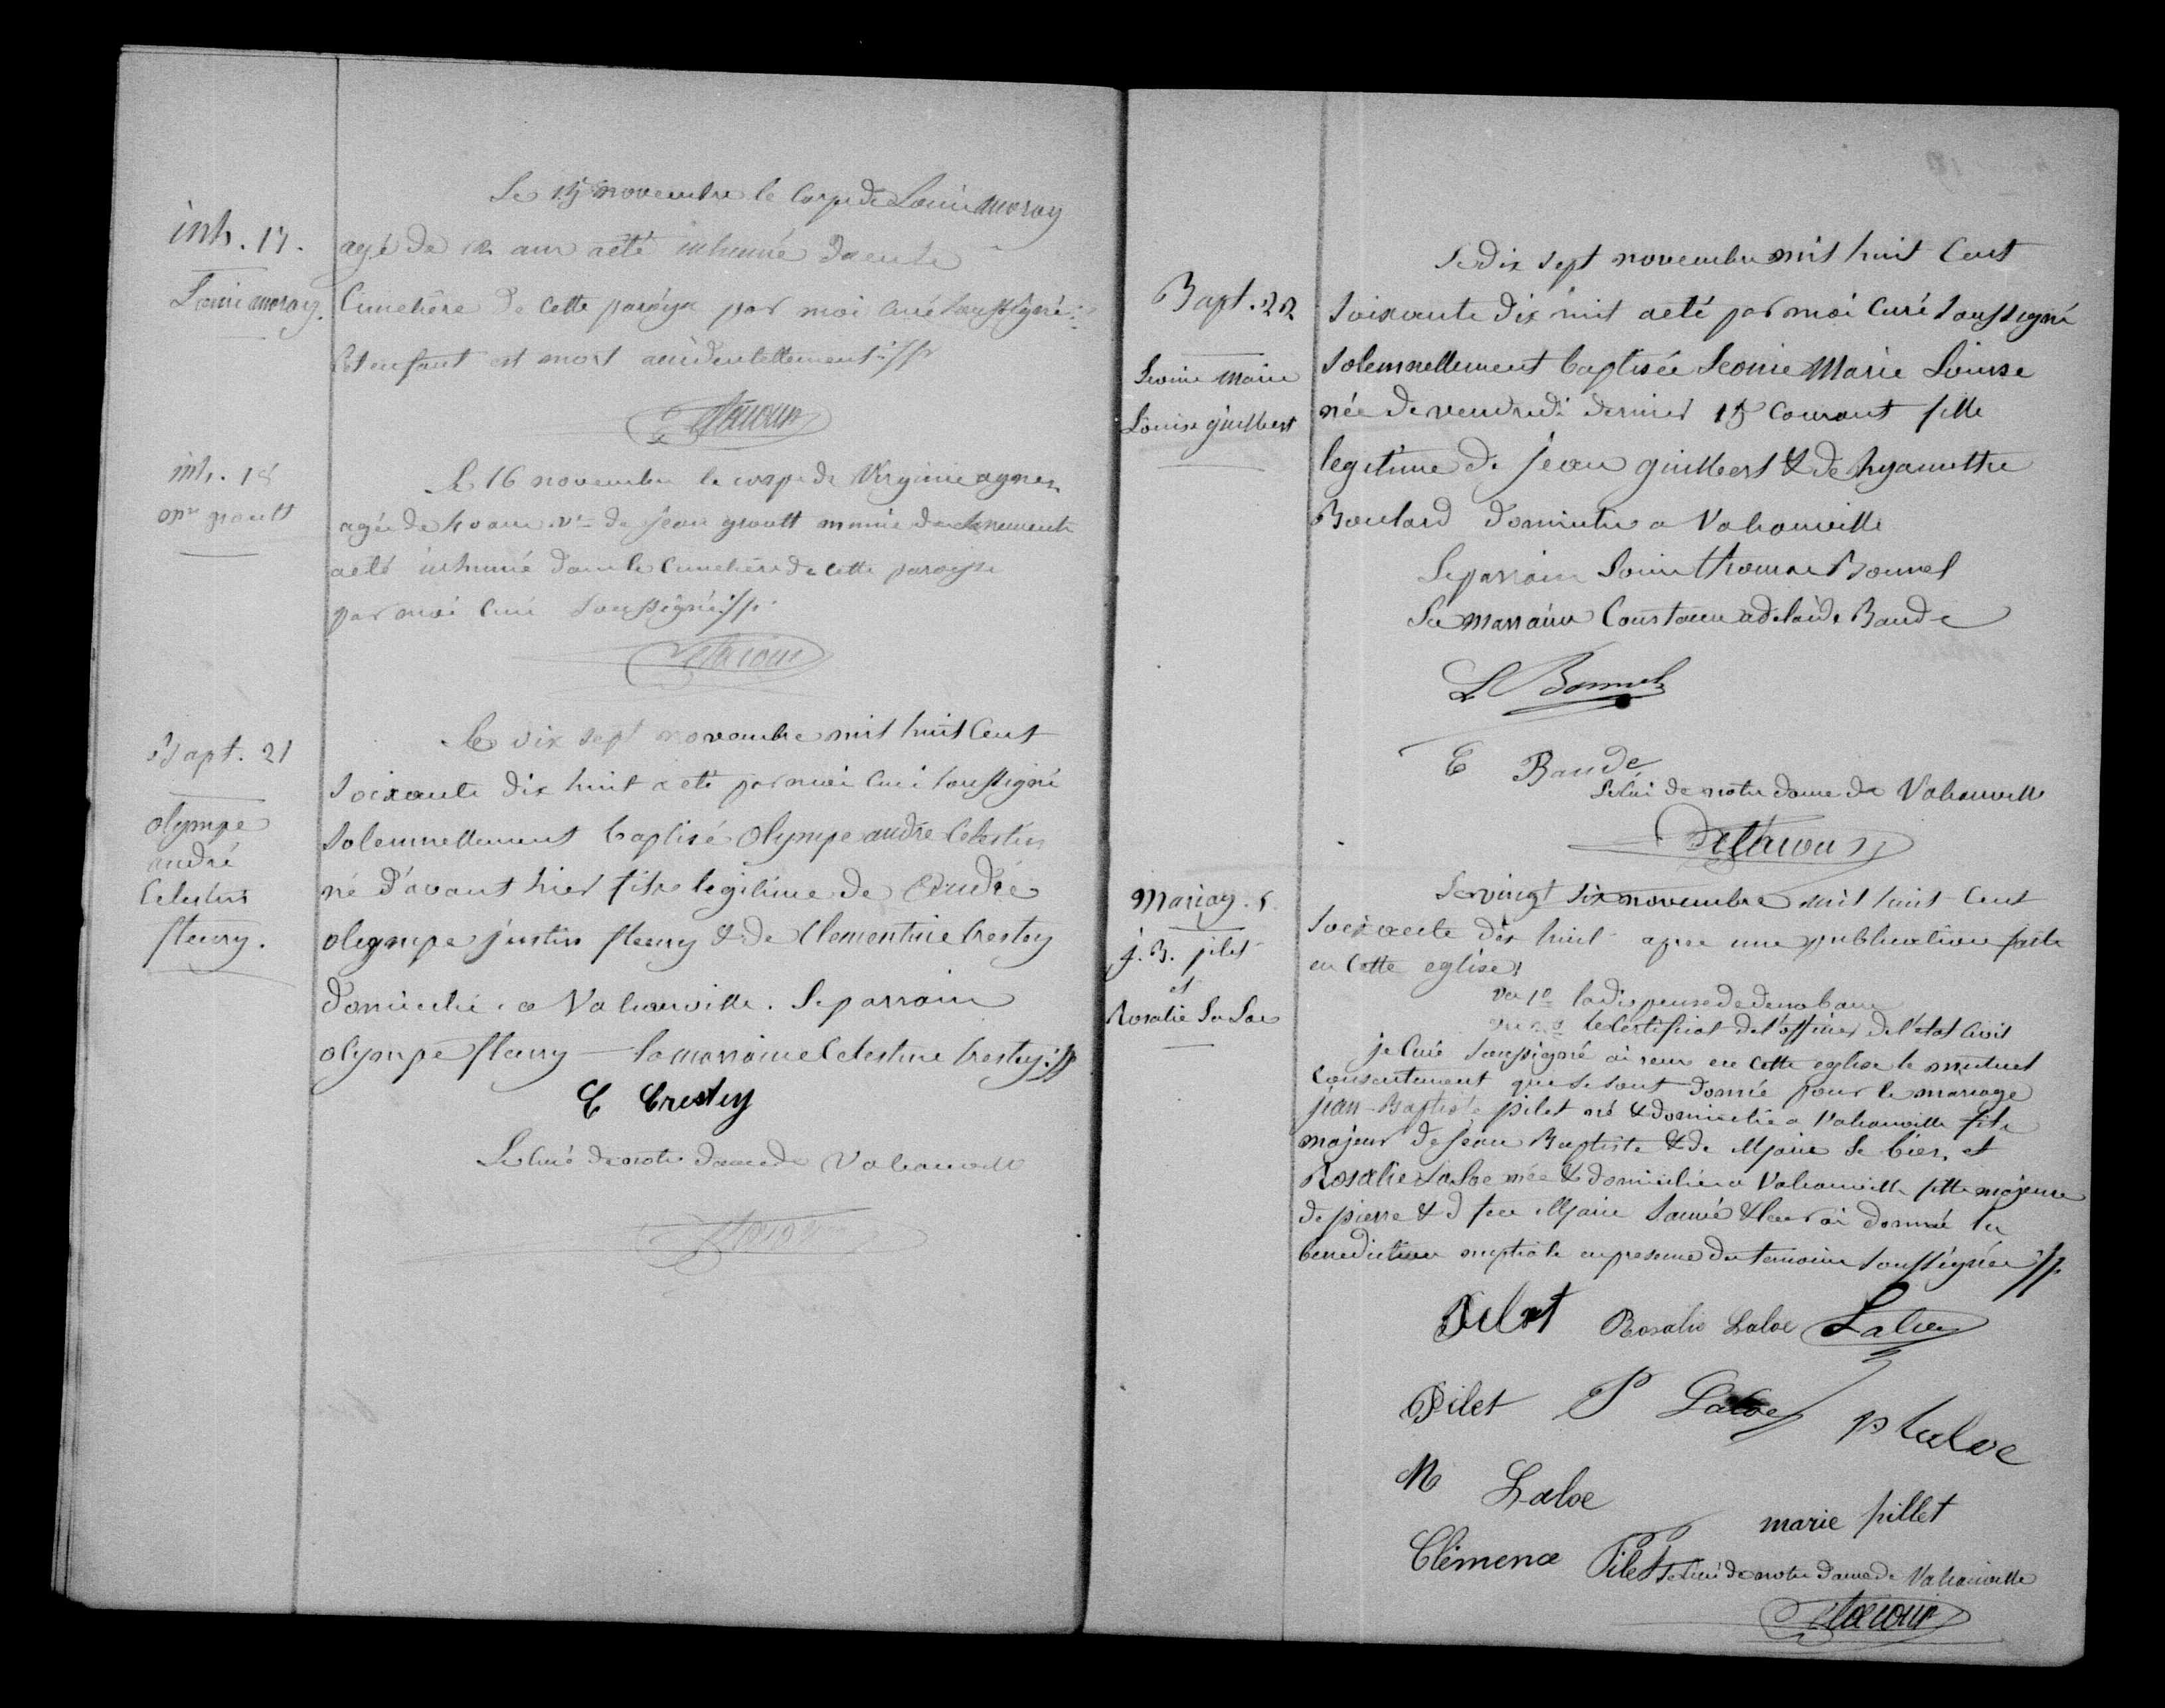 inh. 17.
Louis moray.
Le 15 novembre le corps de Louis moray
agé de 12 ans aété inhumé dans le
Cimetière de cette paroisse par moi curé soussigné
Cet enfant est mort accidentellement
Delacour
inh. 18
grault
Le 16 novembre le corps de Virginie agnes
agée de 40 ans vve de jean grault munie des sacrements
aété inhumé dans le Cimetière de cette paroisse
par moi Curé Soussigné
Delacour
Bapt. 21
olympe
andré
Celestin
fleury.
Le dix sept novembre mil huit Cent
soixante dix huit a eté par moi Curé soussigné
solennellement baptisé olympe andré Celestin
né d'avant hier fils legitime de andré
olympe justin fleury & de Clementine Crestey
domicilié a Valcanville. Le parrain
olympe fleury — la marraine Celestine Crestey
C Crestey
Le Curé de notre dame de Valcanville
Delacour
Bapt. 22
Leonie Marie
Louise guilbert
Le dix sept novembre mil huit Cent
soixante dix huit aeté par moi Curé soussigné
solemnellement baptisée Leonie Marie Louise
née de vendredi dernier 15 Courant fille
legitime de jean guilbert & de hyacinthe
Boulard domiciliés a Valcanville
Le parrain Louis thomas Bonnel
La marraine Constance adelaide Baude
L Bonnel
C Baude
Le Curé de notre dame de Valcanville
Delacour
Mariag. 5
j. B. pilet
et
Rosalie La Loe
Le vingt six novembre mil huit Cent
soixante dix huit apres une publication faite
en cette eglise;
vu 1o la dispense de deux bans
vu 2o le certificat de l'officier de l'etat Civil
je Curé soussigné ai reçu en cette eglise le mutuel
Consentement que se sont donné pour le mariage
jean-Baptiste pilet né & domicilié a Valcanville fils
majeur de jean Baptiste & de Marie Le bier, et
Rosalie LaLoe née & domiciliée a Valcanville fille majeure
de pierre & d feu Marie & leur ai donné la
benediction nuptiale en presence des temoins soussignés
Pilet Rosalie Laloe Laloe
Pilet P Laloe p laloe
M Laloe
marie pillet
Clémence Pilet Le Curé de notre dame de Valcanville
Delacour